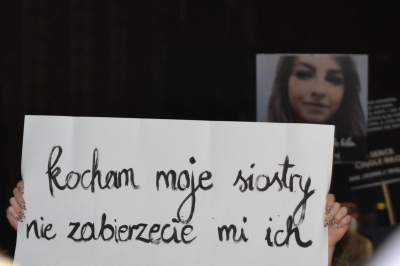 kocham moje siostry
nie zabierzecie mi ich